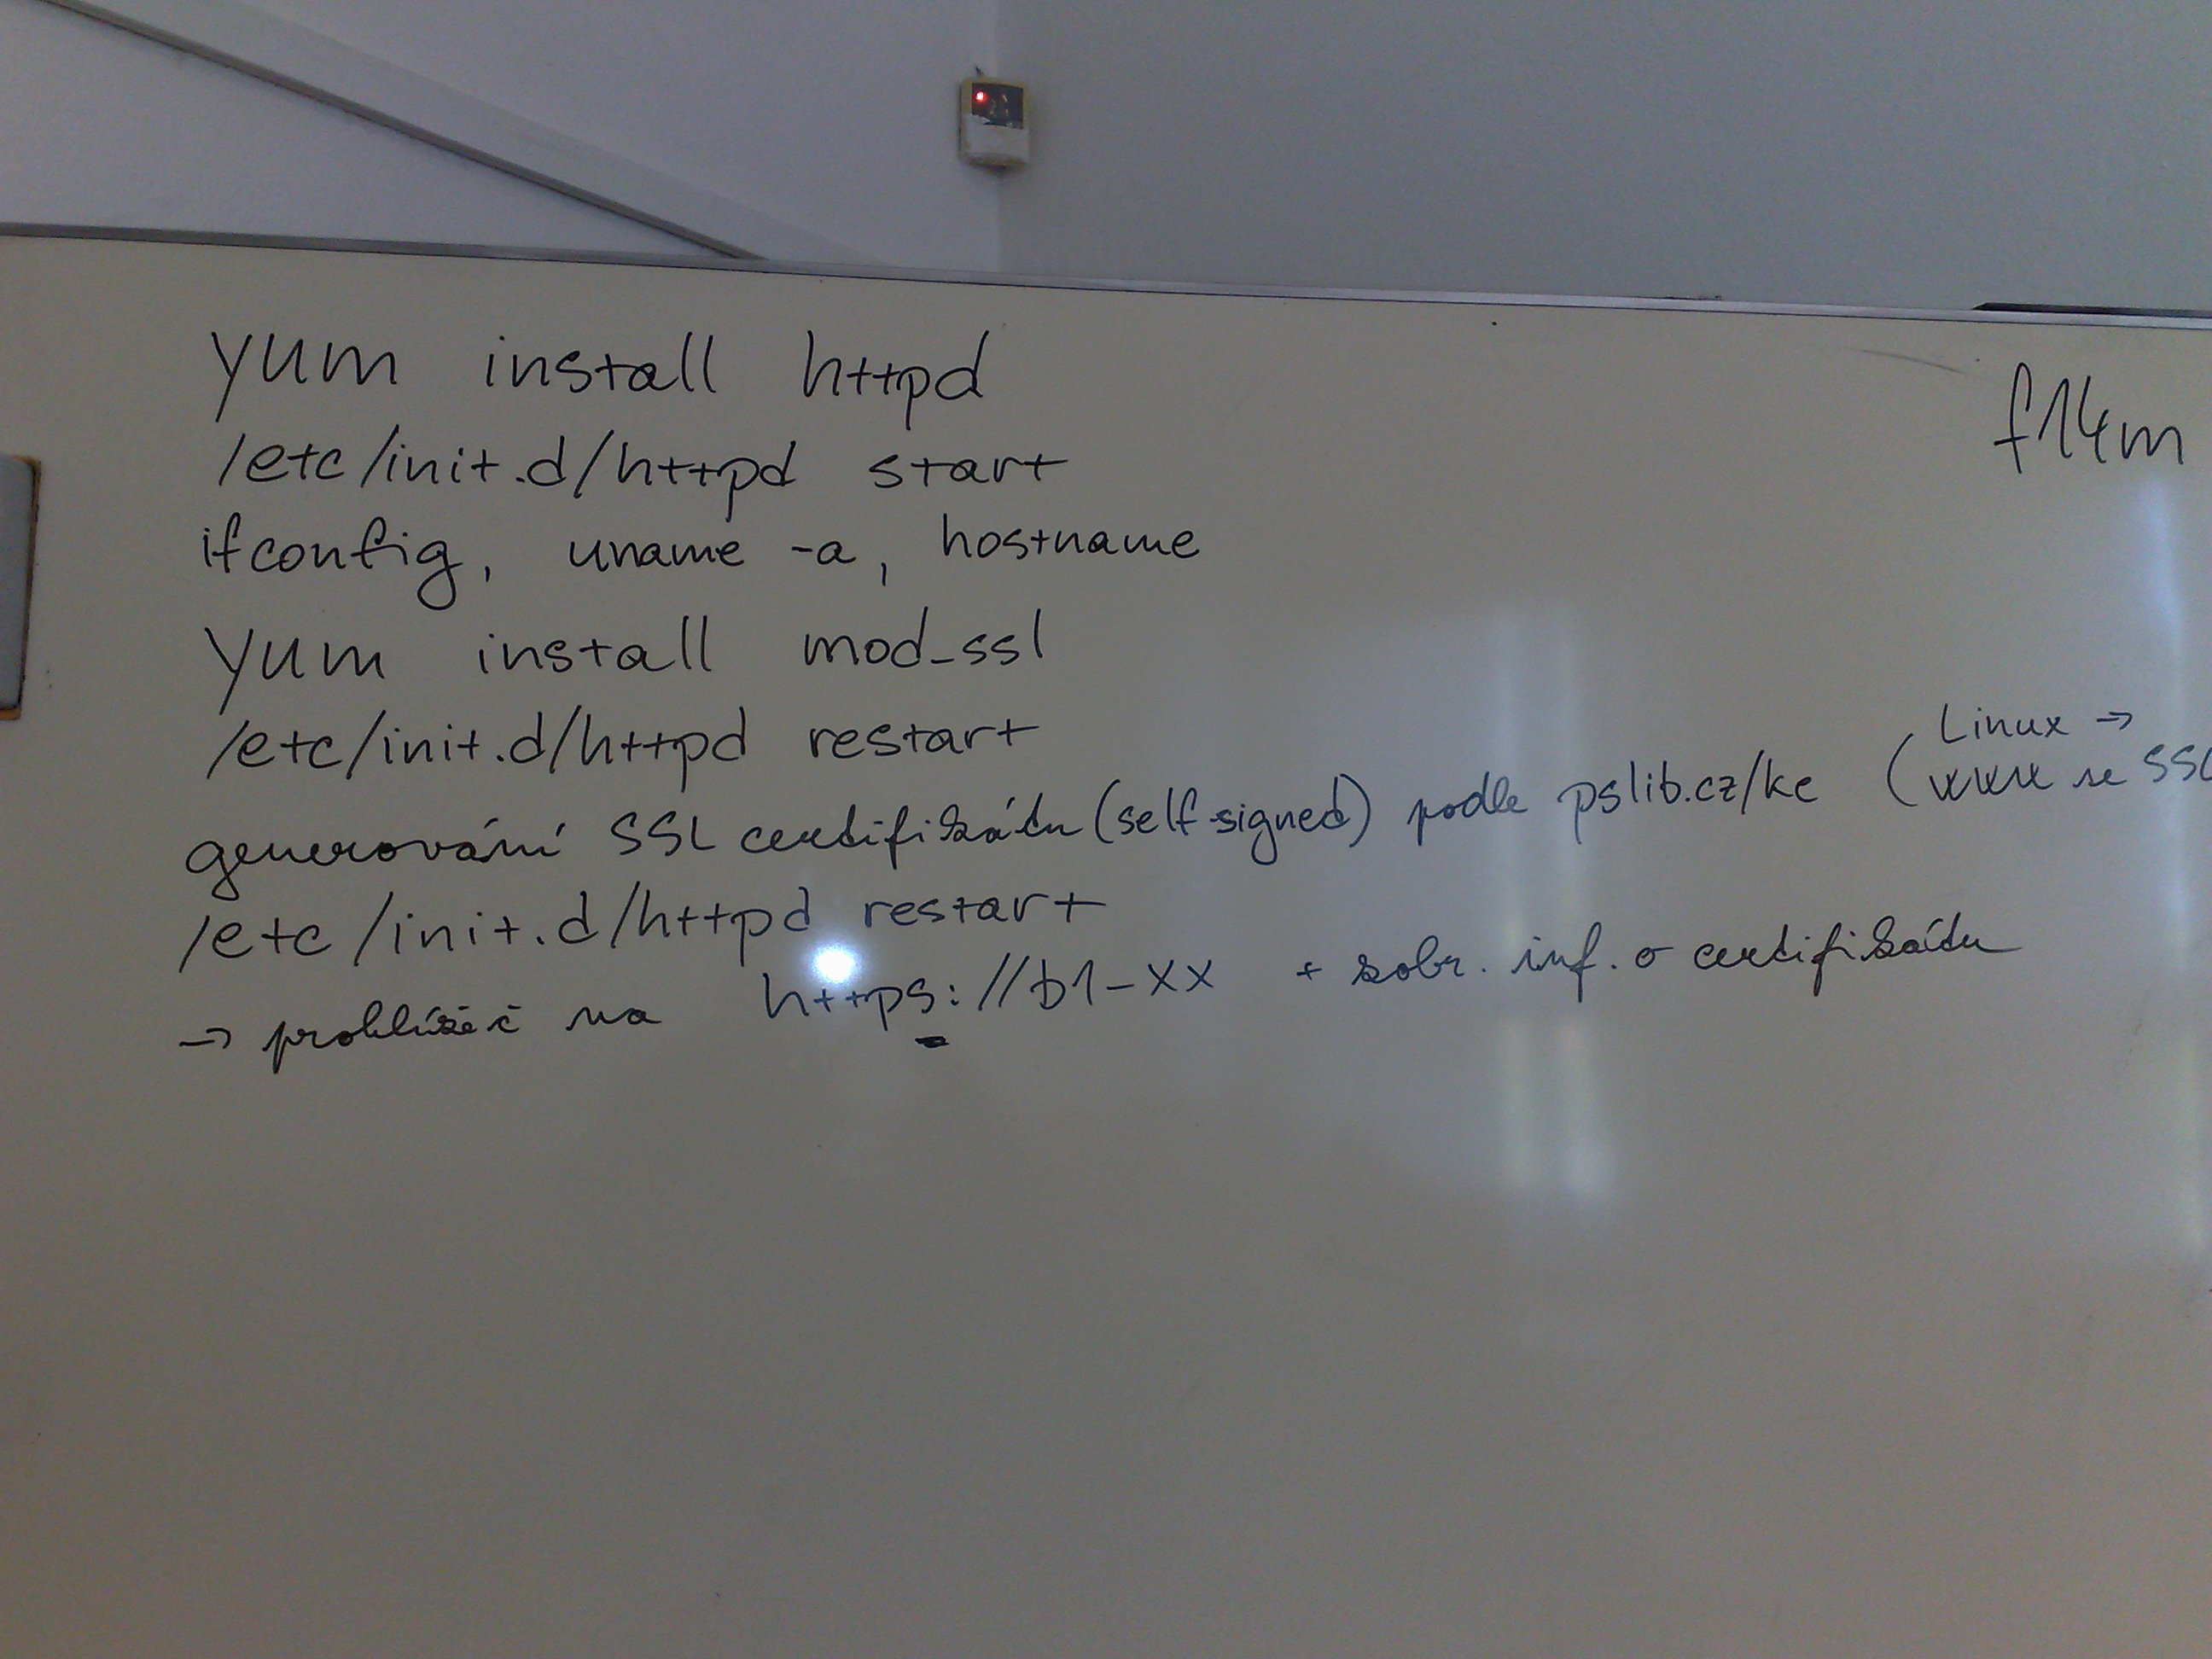 yum install httpd
f14m
/etc/init.d/httpd start
ifconfig, uname -a, hostname
yum install mod_ssl
/etc/init.d/httpd restart
generování SSL certifikátu (self-signed) podle pslib.cz/ke (Linux →
www se SSL
/etc/init.d/httpd restart
→ prohlížeč na https://b1-xx + zobr. inf. o certifikátu